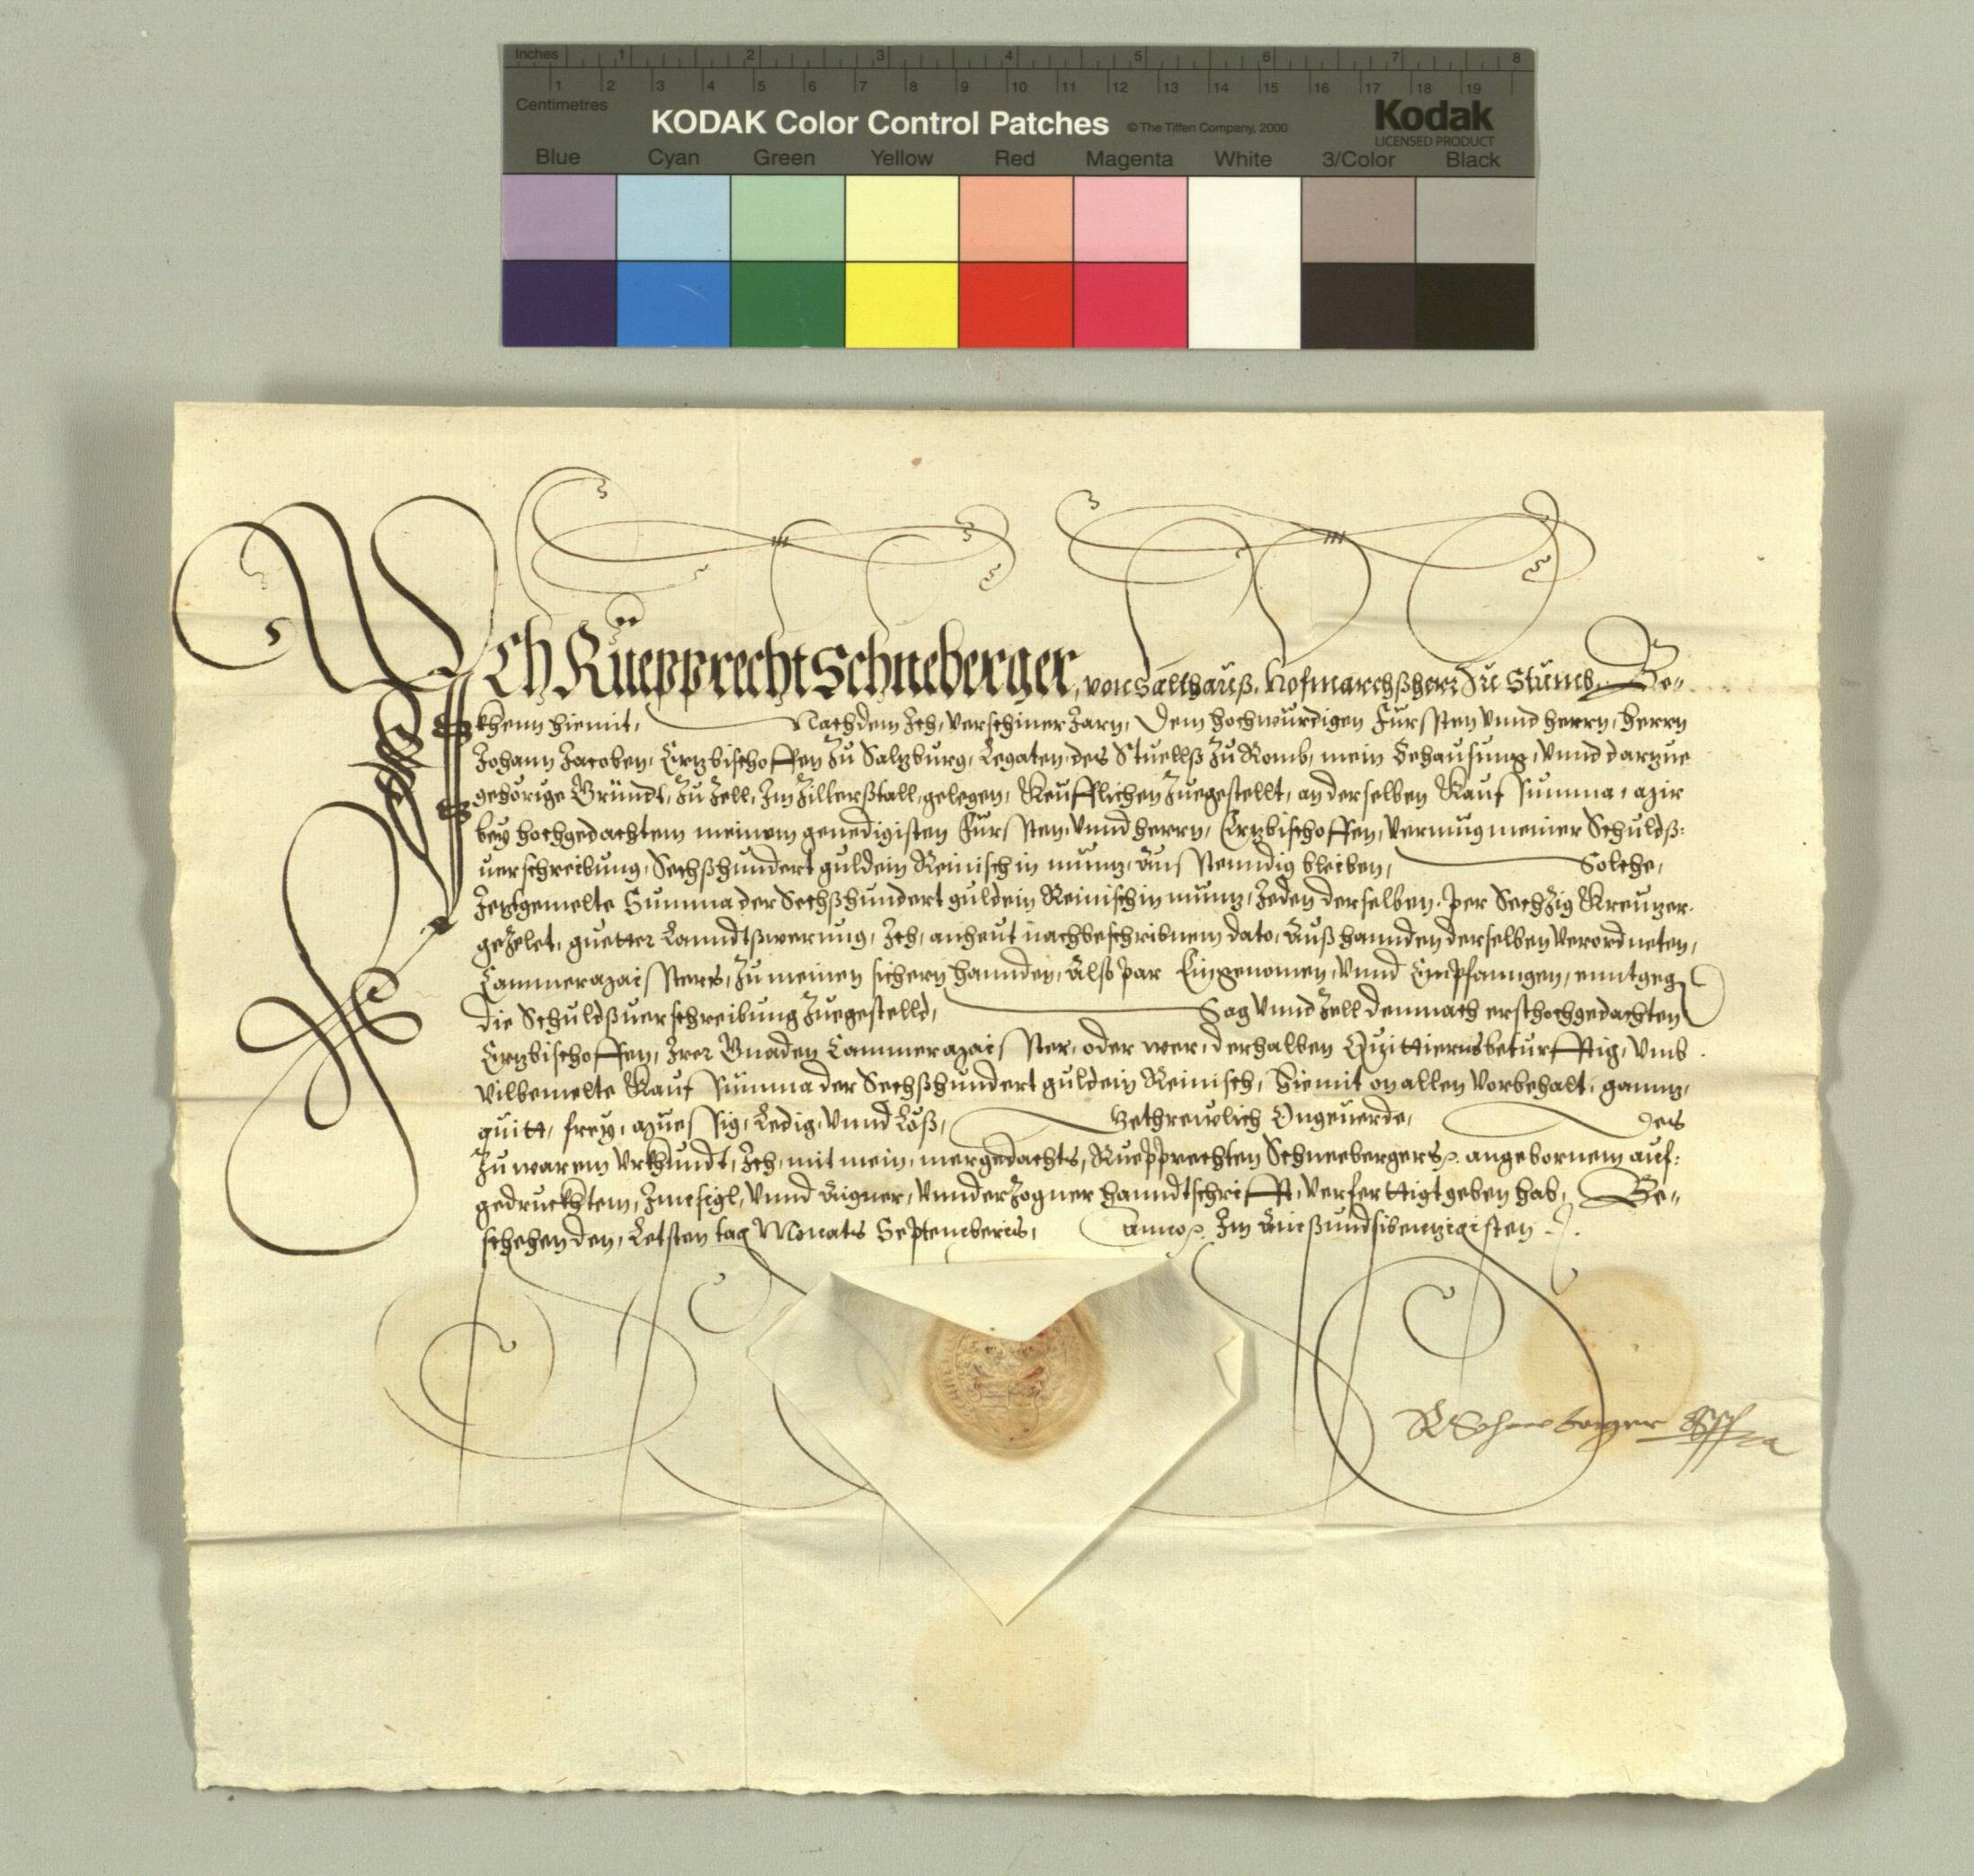 Inches 1 2 3 4 5 6 7 8
1 2 3 4 5 6 7 8 9 10 11 12 13 14 15 16 17 18 19
Centimetres
KODAK Color Control Patches © The Tiffen Company, 2000 Kodak
LICENSED PRODUCT
Blue Cyan Green Yellow Red Magenta White 3/Color Black
Ich Rüepprecht Schneberger, von Salthauß, Hofmarchßherr Zu Stumb, Be-
khenn hiemit, Nachdem Ich, verschiner Jarn, Dem hochwürdigen Fürssten vnnd herrn, herrn
Johann Jacoben, Ertzbischoffen Zu Saltzburg, Legaten des Stuellß Zu Romb, mein Behausung, vnnd darzue
gehörige Gründt, Zu Zell, Im Zillerßtall, gelegen, Keufflichen Zuegestellt, an derselben Kauf Summa, mir
bey hochgedachtem meinem genedigisten Fürssten vnnd herrn, Ertzbischoffen, vermüg meiner Schuldß-
uerschreibung, Sechßhundert guldein Reinisch in müntz, Aussstenndig bleiben, Solche,
Jetztgemelte Summa der Sechßhundert guldein Reinisch in müntz, Jeden derselben, per Sechzig Kreutzer
gezelet, guetter Lanndtßwerung, Ich, anheut nachbeschribnem dato, Auß hannden derselben Verordneten,
Cammermaissters, Zu meinen sichern hannden, Alls par Eingenomen, vnnd Empfanngen, enntgeg
die Schuldßuerschreibung Zuegestelld, Sag vnnd Zell demnach ersthochgedachten
Ertzbischoffen, Irer Gnaden Cammermaisster, oder wer, derhalben Quittierns betürfftig, vmb
vilbemelte Kauf Summa der Sechßhundert guldein Reinisch, hiemit on allen Vorbehalt, ganntz,
quitt, frey, muessig, Ledig, vnnd Loß, Gethrewlich Ongeuerde, Des
Zu warem Vrkhundt, Ich, mit mein, mergedachts, Ruepprechten Schneebergers angebornem auf-
gedruckhtem, Innsigl, vnnd Aigner, vnnderzogner hanndtschrifft, verferttigt geben hab, Ge-
schehen den, Letsten tag Monats Septembris, Anno Im Ainßundsibentzigisten
R Schneberger